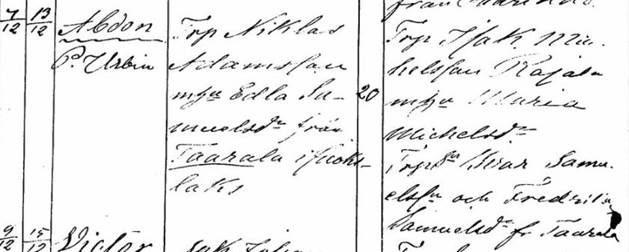 7/12 13/12 Abdon
P. Urbin
Trp Niklas
Adamsson
mhu Edla Sa-
muelsdr från
Taarala i Kuoks-
laks
20
Trp Isak Mic-
helsson Rajala
mhu Maria
Michelsdr
Trpsn Ivar Samu-
elsson och Fredrika
Samuelsdr fr Taarala
9/12 15/12 Victor